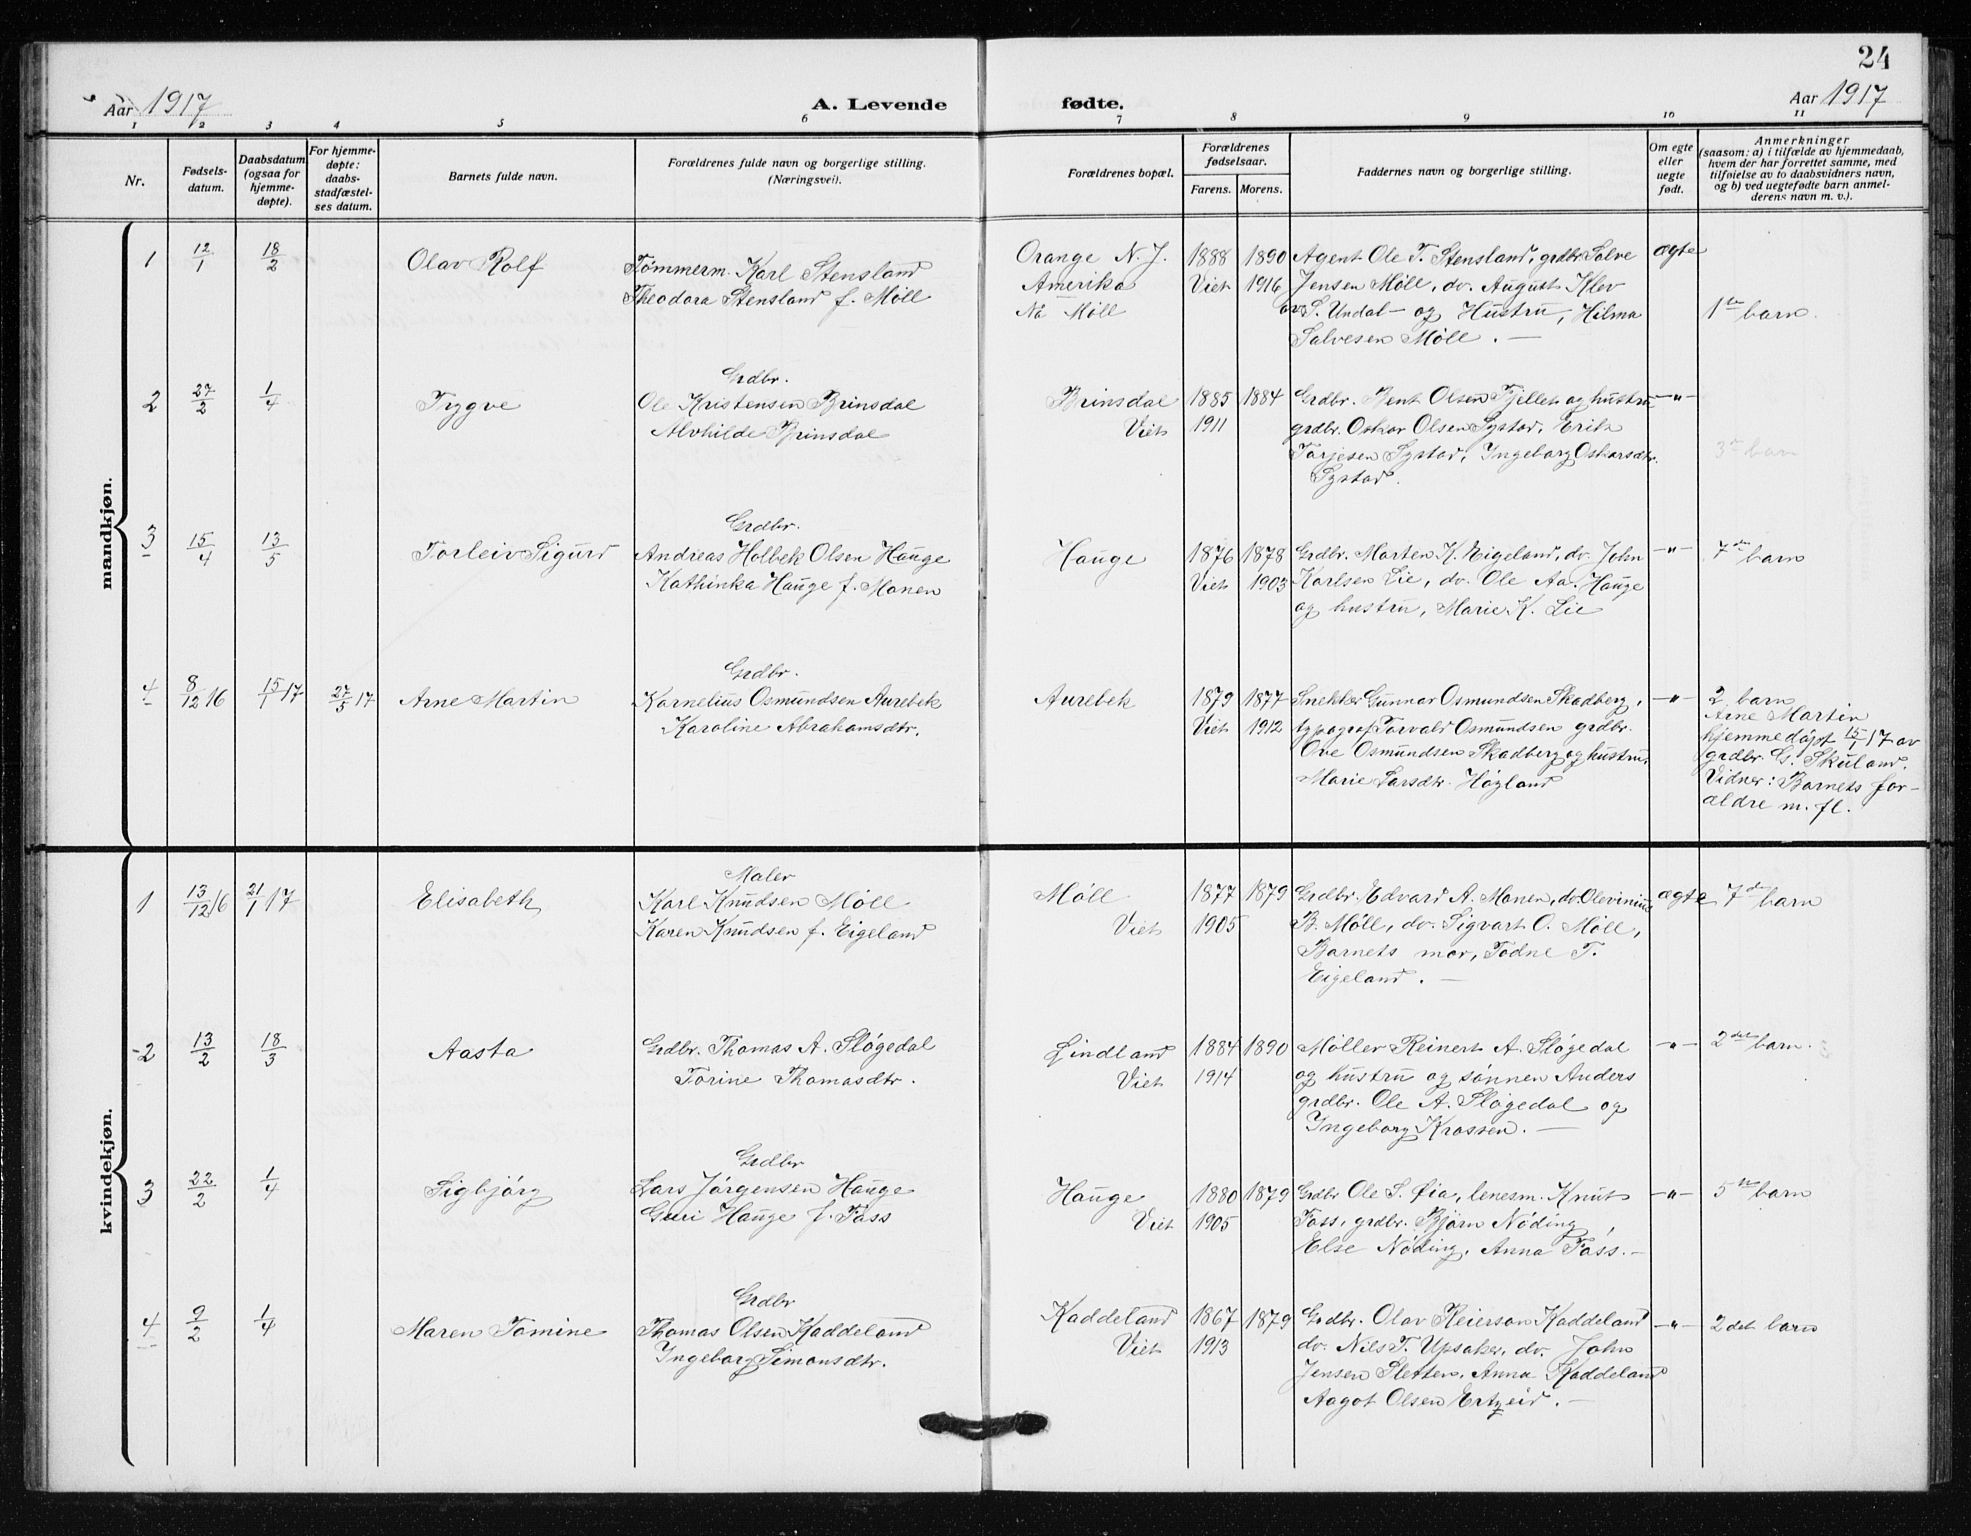 24
Aar 1917
A. Levende fødte.
Aar 1917
1 2 3 4 5 6 7 8 9 10 11
Nr.
Fødsels-
datum.
Daabsdatum
(ogsaa for
hjemme-
døpte).
For hjemme-
døpte:
daabs-
stadfæstel-
ses datum.
Barnets fulde navn.
Forældrenes fulde navn og borgerlige stilling.
(Næringsvei).
Forældrenes bopæl.
Forældrenes
fødselsaar.
Farens. Morens.
Faddernes navn og borgerlige stilling.
Om egte
eller
uegte
født.
Anmerkninger
(saasom: a) i tilfælde av hjemmedaab,
hvem der har forrettet samme, med
tilføielse av to daabsvidners navn,
og b) ved uegtefødte barn anmel-
derens navn m. v.).
mandkjøn.
1 12/1 18/2 Olav Rolf
Tømmerm. Karl Stensland
Theodora Stensland f. Møll
Orange N. J.
Amerika
Nå Møll
1888 1890
Viet 1916
Agent Ole T. Stensland, grdbr Salve
Jensen Møll, do. August Klev
av S. Undal - og Hustru, Hilma
Salvesen Møll. —
ægte
1ste barn.
2 27/2 1/4 Trygve
Grdbr.
Ole Kristensen Brinsdal
Alvhilde Brinsdal
Brinsdal
Viet
1885 1884
1911
Grdbr. Bent Olsen Fjellet og hustru
grdbr. Oskar Olsen Systad, Erik
Tarjesen Systad, Ingeborg Oskarsdtr.
Systad.
—"—
3de barn
3 15/4 13/5 Torleiv Sigurd
Grdbr.
Andreas Holbek Olsen Hauge
Kathinka Hauge f. Monen
Hauge
1876 1878
Viet 1903
Grdbr. Marten K. Eigeland, do. John
Karlsen Lie, do. Ole Aa. Hauge
og hustru, Marie K. Lie
—"—
7de barn
4 8/12 16 15/1 17 27/5 17 Arne Martin
Grdbr.
Kornelius Osmundsen Aurebek
Karoline Abrahamsdtr.
Aurebek
1879 1877
Viet 1912
Snekker Gunnar Osmundsen Skadberg,
typograf Torvald Osmundsen grdbr.
Ove Osmundsen Skadberg og hustru,
Marie Larsdtr. Høyland
—"—
2 barn
Arne Martin
hjemmedøpt 15/1 17 av
grdbr. G. Skuland.
Vidner: Barnets for-
ældre m. fl.
kvindekjøn.
1 13/12 16 21/1 17 Elisabeth
Maler
Karl Knudsen Møll
Karen Knudsen f. Eigeland
Møll
Viet
1877 1879
1905
Grdbr. Edvard A. Monen, do Olevinius
B. Møll, do. Sigvart O. Møll,
Barnets mor, Todne T.
Eigeland. —
ægte
7de barn
2 13/2 18/3 Aasta
Grdbr. Thomas A. Sløgedal
Torine Thomasdtr.
Lindland
Viet
1884 1890
1914
Møller Reinert A. Sløgedal
og hustru og sønnen Anders
grdbr. Ole A. Sløgedal og
Ingeborg Krossen. —
—"—
2det barn.
3 22/2 1/4 Sigbjørg
Grdbr
Lars Jørgensen Hauge
Guri Hauge f. Foss
Hauge
Viet
1880 1879
1905
Grdbr Ole S. Øia, lensm. Knut
Foss, grdbr. Bjørn Nøding,
Else Nøding, Anna Foss. —
—"—
5te barn
4 9/2 1/4 Maren Tomine
Grdbr
Thomas Olsen Kaddeland
Ingeborg Simonsdtr.
Kaddeland
Viet
1867 1879
1913
Grdbr. Olav Reierson Kaddeland
do. Nils T. Upsaker, do. John
Jensen Sletten, Anna Kaddeland
Aagot Olsen Ertzeid. —
—"—
2det barn